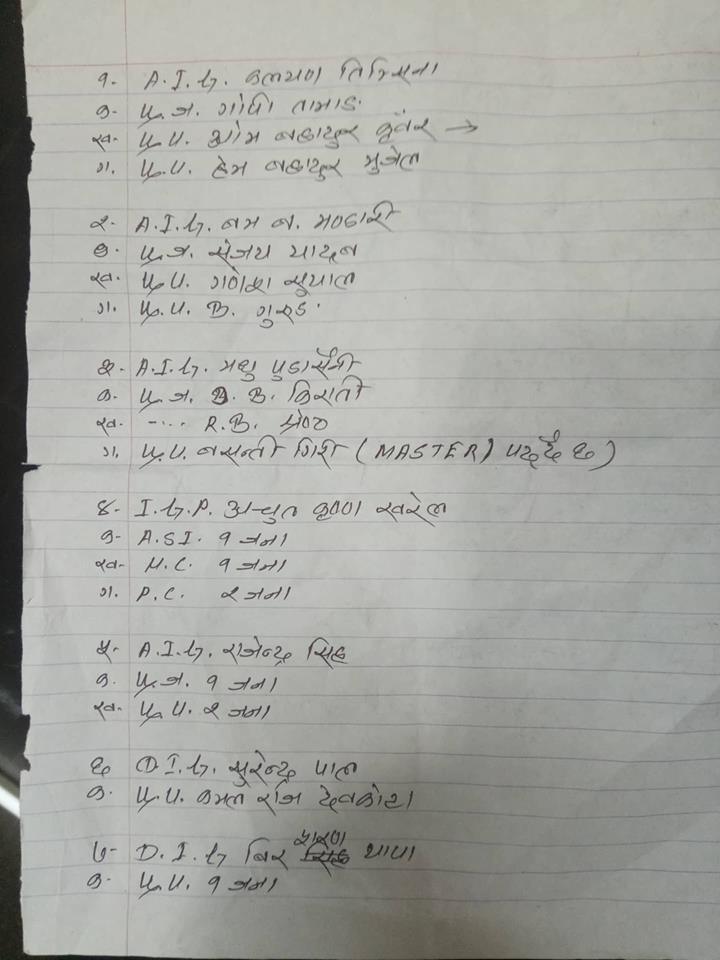 १- A.I.G. कल्याण तिमिल्सिना
क- प्र.ज. गोपी तामाङ
ख- प्र.प. ओम बहादुर कुंवर →
ग. प्र.प. हेम बहादुर मुजेल
२- A.I.G. बम ब. भण्डारी
क- प्र.ज. संजय यादव
ख- प्र.प. गणेश सुयाल
ग. प्र.प. B. गुरुङ
३- A.I.G. मधु पुडासैनी
क- प्र.ज. D. B. किराती
ख- -... R.B. श्रेष्ठ
ग. प्र.प. बसन्ती गिरी (MASTER) पढ्दै छ)
४- I.G.P. अच्युत कृष्ण खरेल
क- A.SI. १ जना
ख- H.C. १ जना
ग. P.C. २ जना
५- A.I.G. राजेन्द्र सिंह
क. प्र.ज. १ जना
ख- प्र.प. २ जना
६ D.I.G. सुरेन्द्र पाल
क- प्र.प. कमल रवि देवकोटा
७- D.I.G बिर शरण थापा
क- प्र.प. १ जना